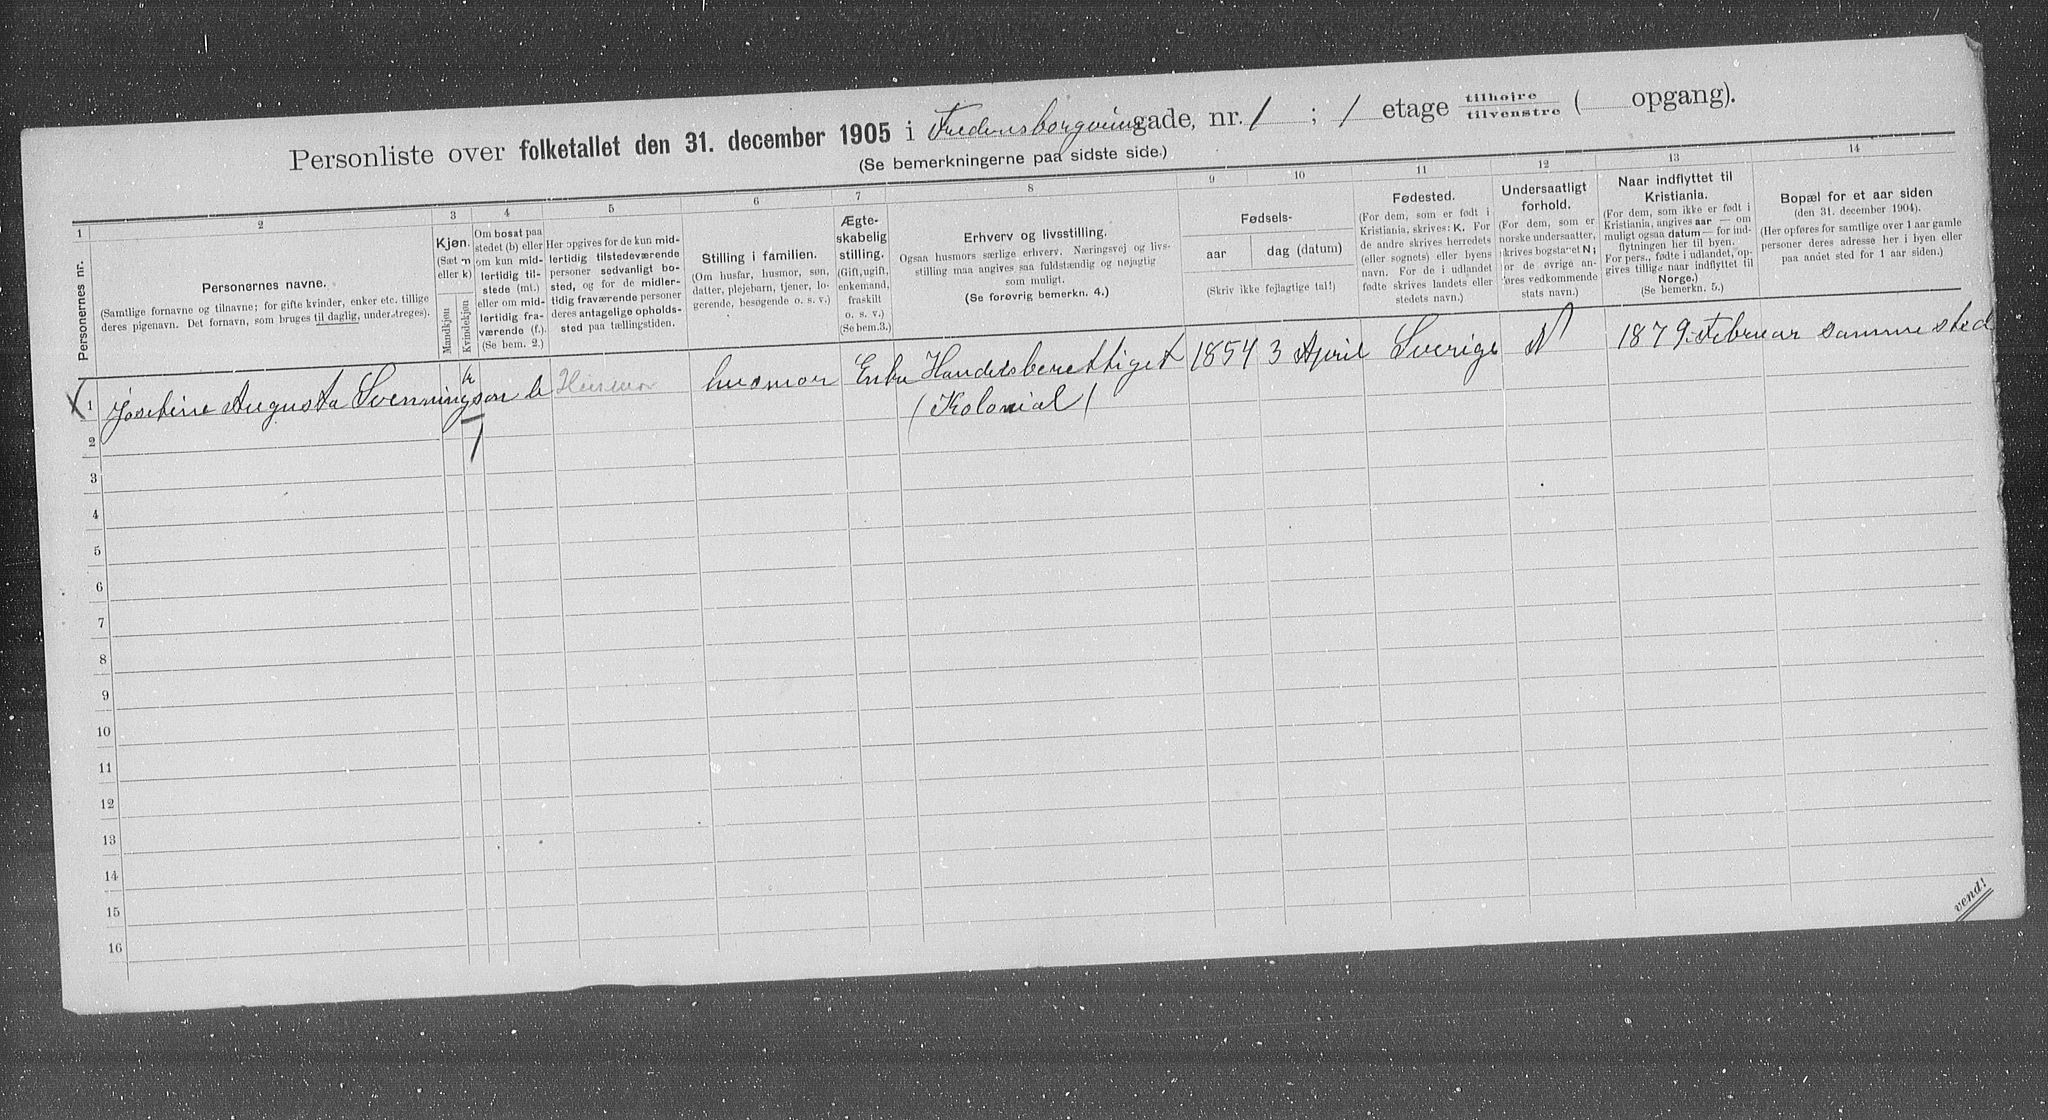 Personliste over folketallet den 31. december 1905 i Fredensborgveien gade, nr. 1 ; 1 etage tilhøire tilvenstre ( opgang).
(Se bemerkningerne paa sidste side.)
1 2 3 4 5 6 7 8 9 10 11 12 13 14
Personernes nr.
Personernes navne.
(Samtlige fornavne og tilnavne; for gifte kvinder, enker etc. tillige
deres pigenavn. Det fornavn, som bruges til daglig, understreges).
Kjøn.
(Sæt m
eller k)
Mandkjøn
Kvindekjøn
Om bosat paa
stedet (b) eller
om kun mid-
lertidig til-
stede (mt.)
eller om mid-
lertidig fra-
værende (f.).
(Se bem. 2.)
Her opgives for de kun mid-
lertidig tilstedeværende
personer sedvanligt bo-
sted, og for de midler-
tidig fraværende personer
deres antagelige opholds-
sted paa tællingstiden.
Stilling i familien.
(Om husfar, husmor, søn,
datter, plejebarn, tjener, lo-
gerende, besøgende o. s. v.)
Ægte-
skabelig
stilling.
(Gift, ugift,
enkemand,
fraskilt
o. s. v.)
(Se bem.3.)
Erhverv og livsstilling.
Ogsaa husmors særlige erhverv. Næringsvej og livs-
stilling maa angives saa fuldstændig og nøjagtig
som muligt.
(Se forøvrig bemerkn. 4.)
Fødsels-
aar
dag (datum)
(Skriv ikke fejlagtige tal!)
Fødested.
(For dem, som er født i
Kristiania, skrives: K. For
de andre skrives herredets
(eller sognets) eller byens
navn. For de i udlandet
fødte skrives landets eller
stedets navn.)
Undersaatligt
forhold.
(For dem, som er
norske undersaatter,
skrives bogstavet N;
for de øvrige an-
føres vedkommende
stats navn.)
Naar indflyttet til
Kristiania.
(For dem, som ikke er født i
Kristiania, angives aar — om
muligt ogsaa datum — for ind-
flytningen her til byen.
For pers., fødte i udlandet, op-
gives tillige naar indflyttet til
Norge.)
(Se bemerkn. 5.)
Bopæl for et aar siden
(den 31. december 1904).
(Her opføres for samtlige over 1 aar gamle
personer deres adresse her i byen eller
paa andet sted for 1 aar siden.)
X 1 Josefine Augusta Svenningson k b Husmor husmor Enke Handelsberettiget 1854 3 April Sverige N 1879 Februar samme sted
(Kolonial)
1
2
3
4
5
6
7
8
9
10
11
12
13
14
15
16
vend!